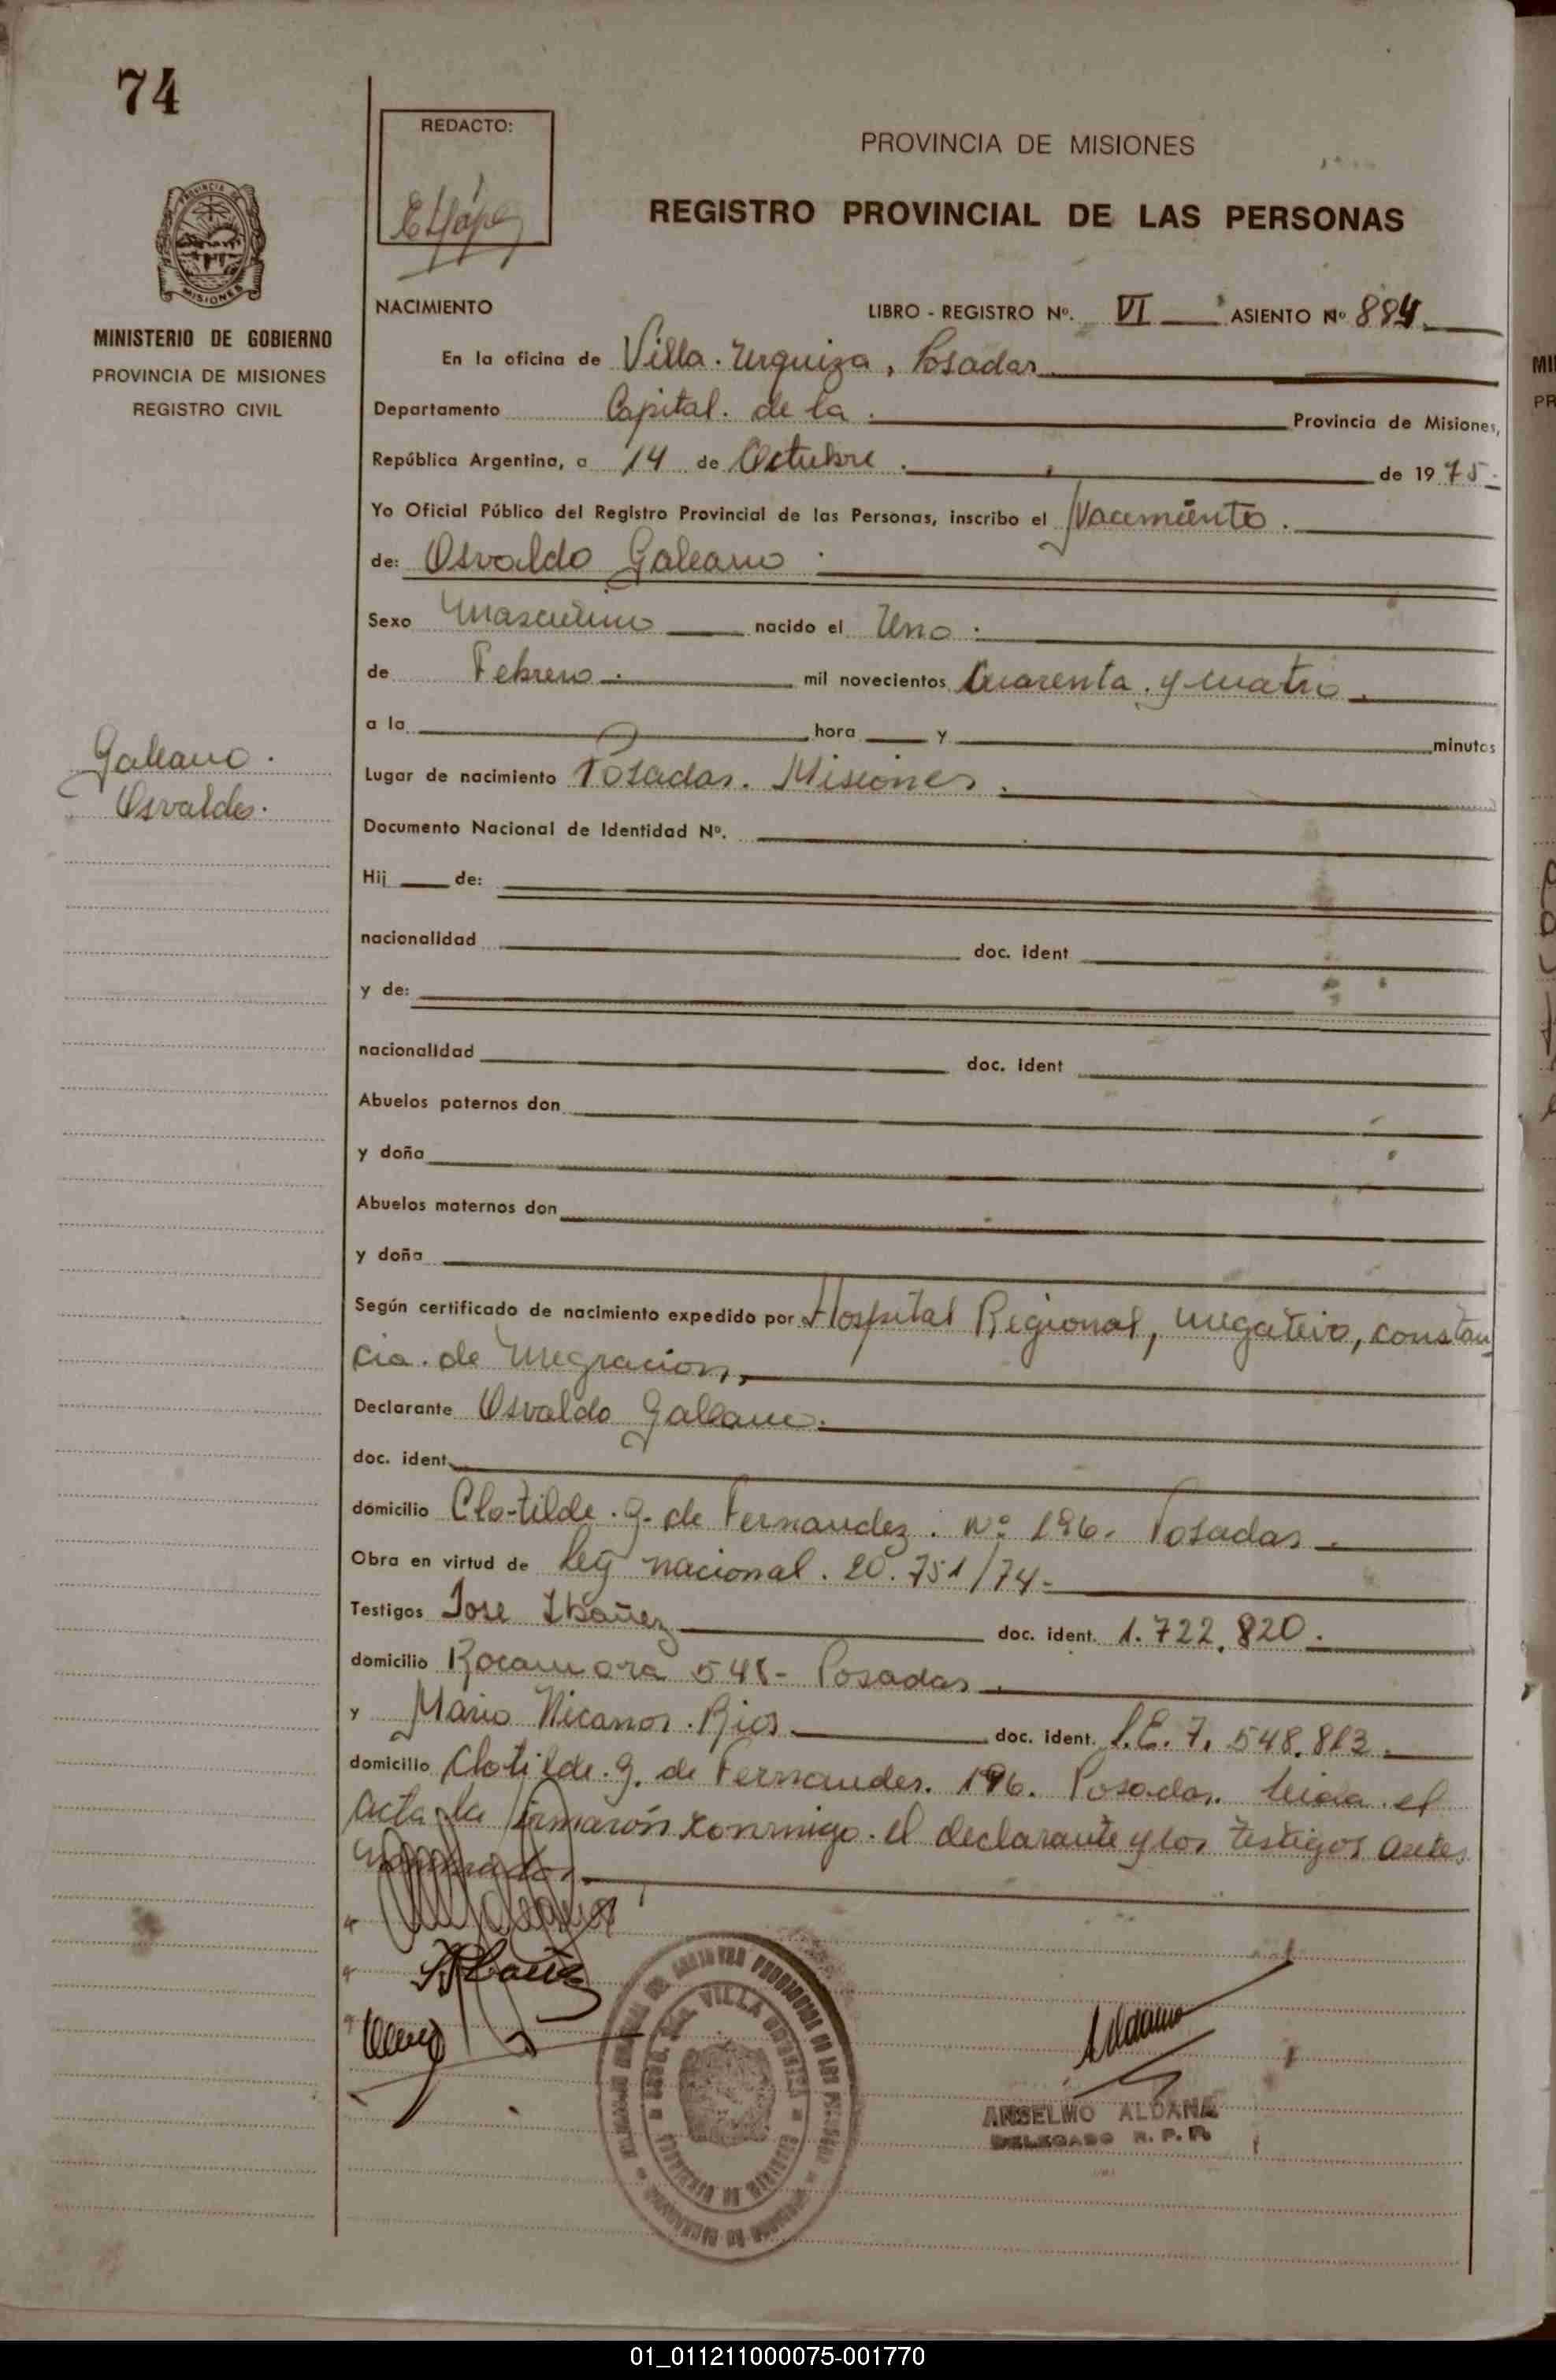 74
REDACTO:
PROVINCIA DE MISIONES
REGISTRO PROVINCIAL DE LAS PERSONAS
PROVINCIA DE
MISIONES
MINISTERIO DE GOBIERNO
PROVINCIA DE MISIONES
REGISTRO CIVIL
NACIMIENTO LIBRO - REGISTRO Nº. VI ASIENTO Nº 884
En la oficina de Villa Urquiza, Posadas
Departamento Capital. de la Provincia de Misiones,
República Argentina, a 14 de Octubre de 1975-
Yo Oficial Público del Registro Provincial de las Personas, inscribo el Nacimiento.
de: Osvaldo Galeano
Sexo Masculino nacido el Uno
de Febrero mil novecientos Cuarenta y cuatro
a la hora y minutos
Galeano.
Osvaldo.
Lugar de nacimiento Posadas. Misiones
Documento Nacional de Identidad Nº.
Hij de:
nacionalidad doc. ident
y de:
nacionalidad doc. ident
Abuelos paternos don
y doña
Abuelos maternos don
y doña
Según certificado de nacimiento expedido por Hospital Regional, negativo, constan
cia de Megracion,
Declarante Osvaldo Galeano.
doc. ident.
domicilio Clotilde. G. de Fernandez. Nº 196. Posadas
Obra en virtud de Ley nacional. 20.751/74-
Testigos Jose Ibañez doc. ident. 1.722.820.
domicilio Rocamora 548- Posadas
y Mario Nicanor Rios doc. ident. L.E. 7.548.813
domicilio Clotilde. G. de Fernandes. 196. Posadas. Leida el
acta la firmarón conmigo. el declarante y los testigos antes
nombrados
VILLA URQUIZA
ANSELMO ALDANA
DELEGADO R. P. P.
01_011211000075-001770